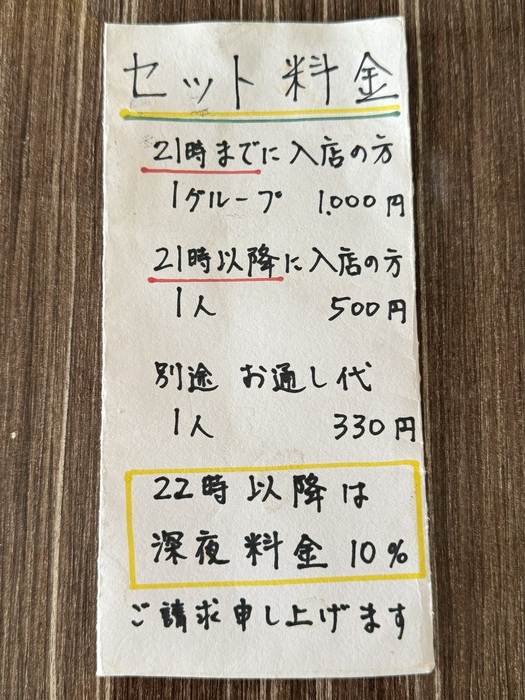 セット料金
21時までに入店の方
1グループ 1,000円
21時以降に入店の方
1人 500円
別途 お通し代
1人 330円
22時以降は
深夜料金10%
ご請求申し上げます